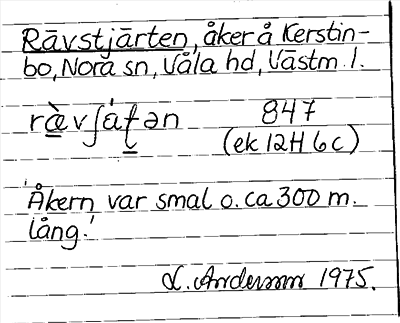 Rävstjärten, åker å Kerstin-
bo, Nora sn, Våla hd, Västm. l.
ræ̀vʃá̱ṯən 847
(ek 12H 6c)
'Åkern var smal o. ca 300 m.
lång.'
L. Andersson 1975.